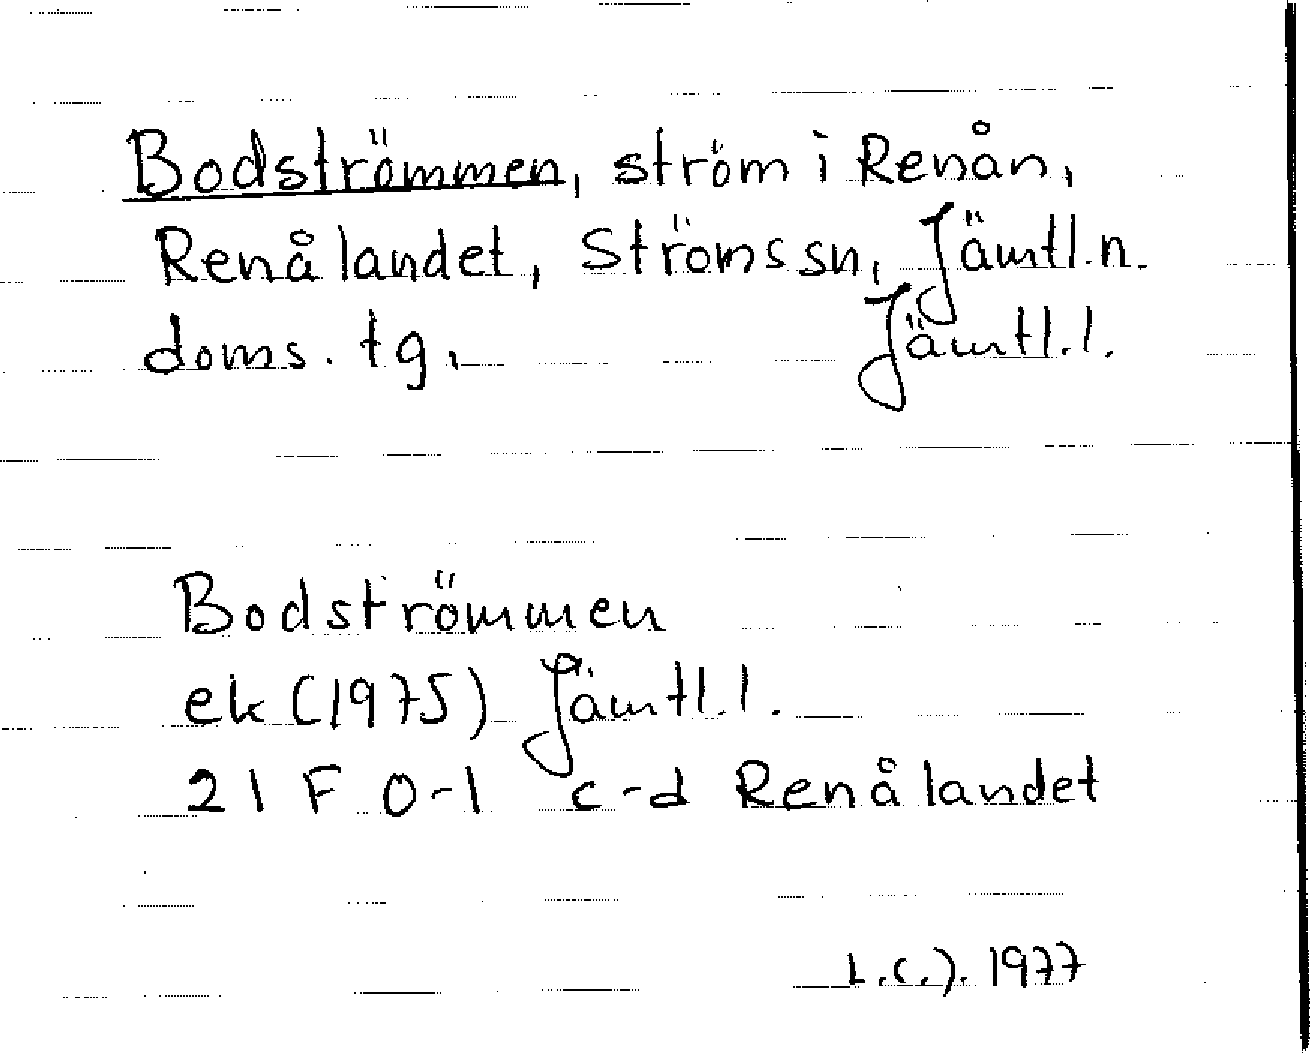 Bodströmmen, ström i Renån,
Renålandet, Ströms sn, Jämtl. n.
doms. tg. Jämtl. l.
Bodströmmen
ek (1975) Jämtl. l.
21 F 0-1 c-d Renålandet
L.C.J. 1977